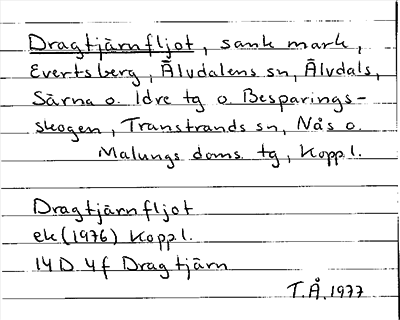 Dragtjärnfljot, sank mark,
Evertsberg, Älvdalens sn, Älvdals,
Särna o. Idre tg o. Besparings-
skogen, Transtrands sn, Nås o.
Malungs doms. tg, Koppl.
Dragtjärnfljot
ek (1976) Koppl.
14 D 4f Dragtjärn
T.Å. 1977